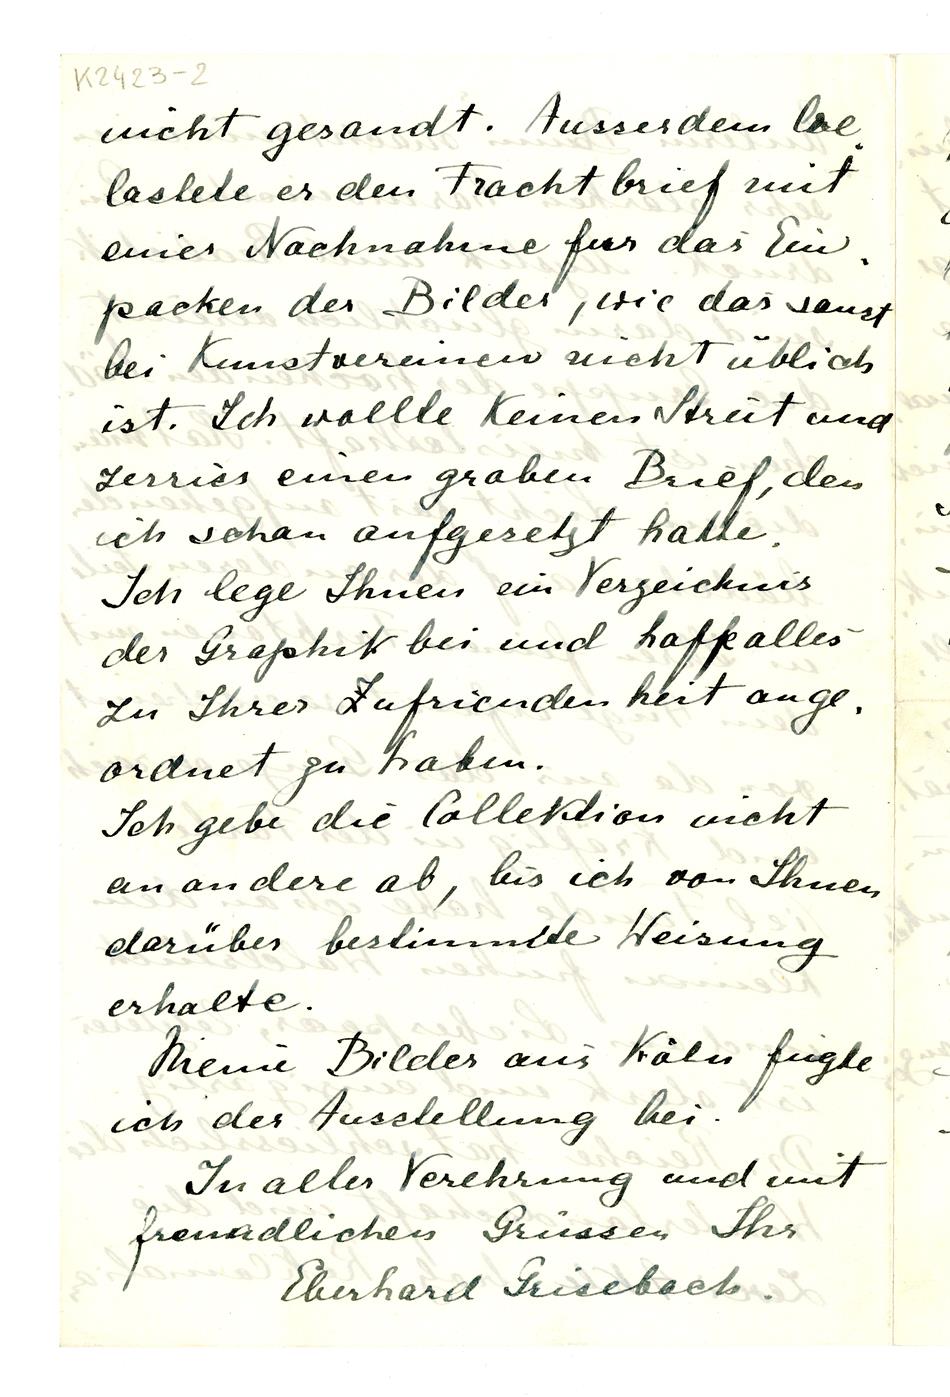 K2423-2
nicht gesandt. Ausserdem be-
lastete er den Frachtbrief mit
einer Nachnahme für das Ein-
packen der Bilder, wie das sonst
bei Kunstvereinen nicht üblich
ist. Ich wollte keinen Streit und
zerriss einen groben Brief, den
ich schon aufgesetzt hatte.
Ich lege Ihnen ein Verzeichnis
der Graphik bei und hoffe alles
zu Ihrer Zufriendenheit ange-
ordnet zu haben.
Ich gebe die Collektion nicht
an andere ab, bis ich von Ihnen
darüber bestimmte Weisung
erhalte.
Meine Bilder aus Köln fügte
ich der Ausstellung bei.
In aller Verehrung und mit
freundlichen Grüssen Ihr
Eberhard Grisebach.